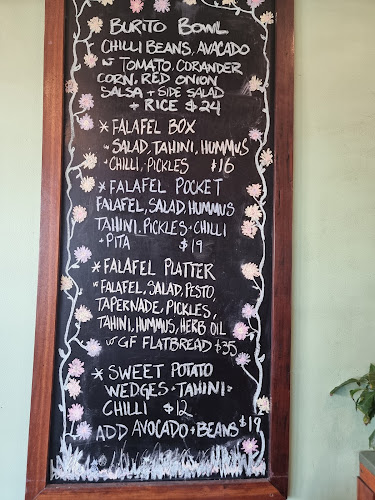 BURITO BOWL
CHILLI BEANS, AVACADO
w TOMATO, CORIANDER
CORN, RED ONION
SALSA + SIDE SALAD
+ RICE $24
* FALAFEL BOX
w SALAD, TAHINI, HUMMUS
+ CHILLI, PICKLES $16
* FALAFEL POCKET
FALAFEL, SALAD, HUMMUS
TAHINI, PICKLES + CHILLI
+ PITA $19
* FALAFEL PLATTER
w FALAFEL, SALAD, PESTO,
TAPERNADE, PICKLES,
TAHINI, HUMMUS, HERB OIL
w GF FLATBREAD $35
* SWEET POTATO
WEDGES + TAHINI +
CHILLI $12
ADD AVOCADO + BEANS $19